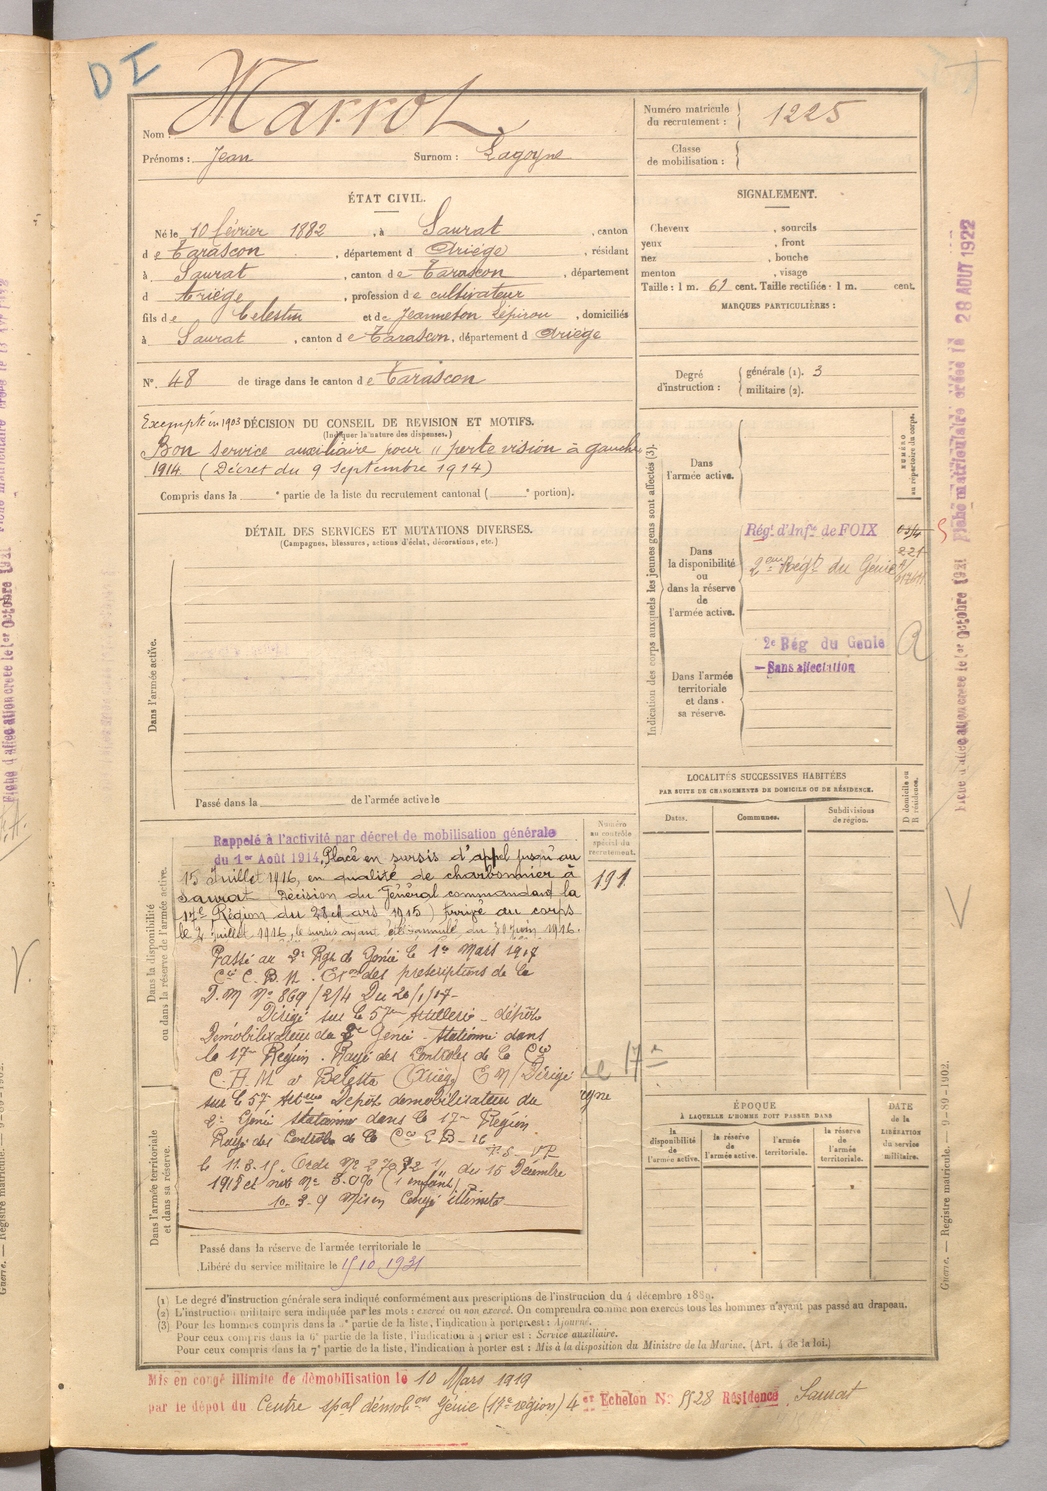 DI
Nom : Marrot
Prénoms : Jean Surnom : Lagoyne
Numéro matricule du recrutement : 1225
Classe de mobilisation :
ÉTAT CIVIL.
Né le 10 février 1882, à Saurat, canton
de Tarascon, département d Ariège, résidant
à Saurat, canton de Tarascon, département
d Ariège, profession de cultivateur
fils de Celestin et de Jeanneton Lépirou, domiciliés
à Saurat, canton de Tarascon, département d Ariège
N°. 48 de tirage dans le canton de Tarascon
SIGNALEMENT.
Cheveux , sourcils
yeux , front
nez , bouche
menton , visage
Taille : 1 m. 61 cent. Taille rectifiée : 1 m. cent.
MARQUES PARTICULIÈRES :
Degré d'instruction : générale (1). 3
militaire (2).
Exempté en 1903 DÉCISION DU CONSEIL DE REVISION ET MOTIFS.
(Indiquer la nature des dispenses.)
Bon service auxiliaire pour " perte vision à gauche
1914. (Décret du 9 Septembre 1914)
Compris dans la ° partie de la liste du recrutement cantonal ( ° portion).
DÉTAIL DES SERVICES ET MUTATIONS DIVERSES.
(Campagnes, blessures, actions d'éclat, décorations, etc.)
Dans l'armée active.
Passé dans la de l'armée active le
Indication des corps auxquels les jeunes gens sont affectés (3).
NUMÉRO au répertoire du corps.
Dans l'armée active.
Dans la disponibilité ou dans la réserve de l'armée active.
Régt. d'Infie de FOIX
2eme Régt du Génie
2e Rég du Genie
Sans affectation
Dans l'armée territoriale et dans sa réserve.
LOCALITÉS SUCCESSIVES HABITÉES
PAR SUITE DE CHANGEMENTS DE DOMICILE OU DE RÉSIDENCE.
Dates. Communes. Subdivisions de région.
D domicile ou R résidence.
Dans la disponibilité ou dans la réserve de l'armée active.
Numéro au contrôle spécial du recrutement.
191
Rappelé à l'activité par décret de mobilisation générale
du 1er Août 1914. Placé en sursis d'appel jusqu'au
15 Juillet 1916, en qualité de charbonnier à
Saurat (Décision du Général commandant la
17e Région du 28 Mars 1915) Arrivé au corps
le 2 juillet 1916, le sursis ayant été annulé au 30 Juin 1916.
Passé au 2e Rgt de Génie le 1er Mars 1917
Cie C. B. M. Exon des prescriptions de la
D.M N° 869/2/4 Du 20/1/17
Dirigé sur le 57e Artillerie - dépôt
Démobilisateur du 2e Génie stationné dans
la 17e Région. Rayé des Contrôles de la Cie
à Belesta (Ariège) Dirigé
sur le 57 Artie Dépôt démobilisateur du
2e Génie stationné dans la 17e Région
Rayé des Contrôles de la Cie
du 15 Décembre
1918 et (1 enfant)
Mis en Congé illimité
Dans l'armée territoriale et dans sa réserve.
Passé dans la réserve de l'armée territoriale le
Libéré du service militaire le 15 10 1931
ÉPOQUE
À LAQUELLE L'HOMME DOIT PASSER DANS
la disponibilité de l'armée active. la réserve de l'armée active. l'armée territoriale. la réserve de l'armée territoriale.
DATE de la LIBÉRATION du service militaire.
(1) Le degré d'instruction générale sera indiqué conformément aux prescriptions de l'instruction du 4 décembre 1889.
(2) L'instruction militaire sera indiquée par les mots : exercé ou non exercé. On comprendra comme non exercés tous les hommes n'ayant pas passé au drapeau.
(3) Pour les hommes compris dans la partie de la liste, l'indication à porter est : Ajourné.
Pour ceux compris dans la 6e partie de la liste, l'indication à porter est : Service auxiliaire.
Pour ceux compris dans la 7e partie de la liste, l'indication à porter est : Mis à la disposition du Ministre de la Marine. (Art. 4 de la loi.)
Mis en congé illimité de démobilisation le 10 Mars 1919
par le dépôt du Centre spal démobon Génie (17e région) 4 Echelon N° 5528 Résidence Saurat
Fiche matriculaire créée le 28 AOUT 1922
Fiche d'affectation créée le 1er Octobre 1921
Guerre. — Registre matricule. — 9-89-1902.